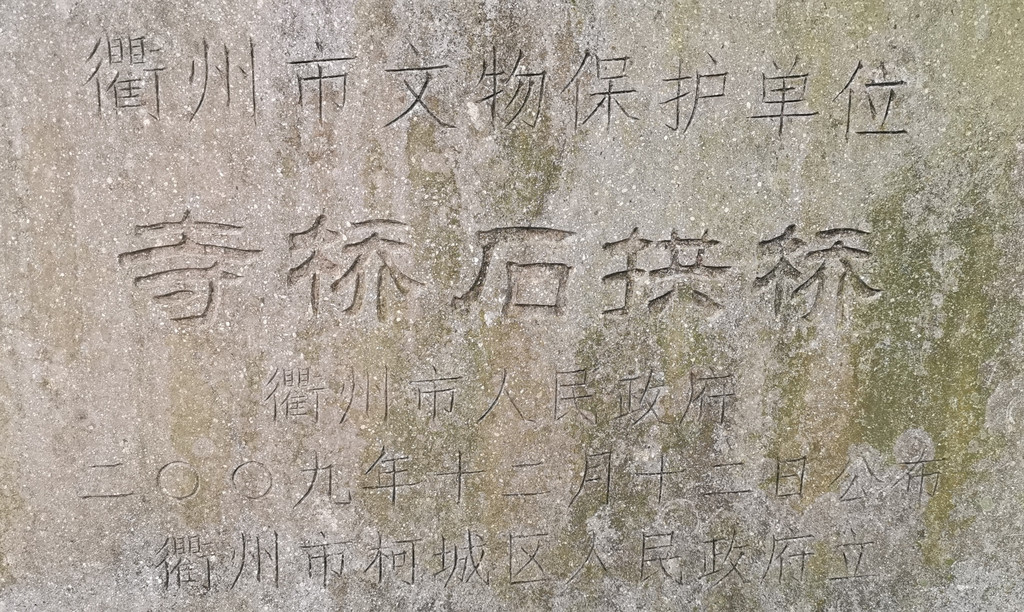 衢州市文物保护单位
寺桥石拱桥
衢州市人民政府
二〇〇九年十二月十二日公布
衢州市柯城区人民政府立